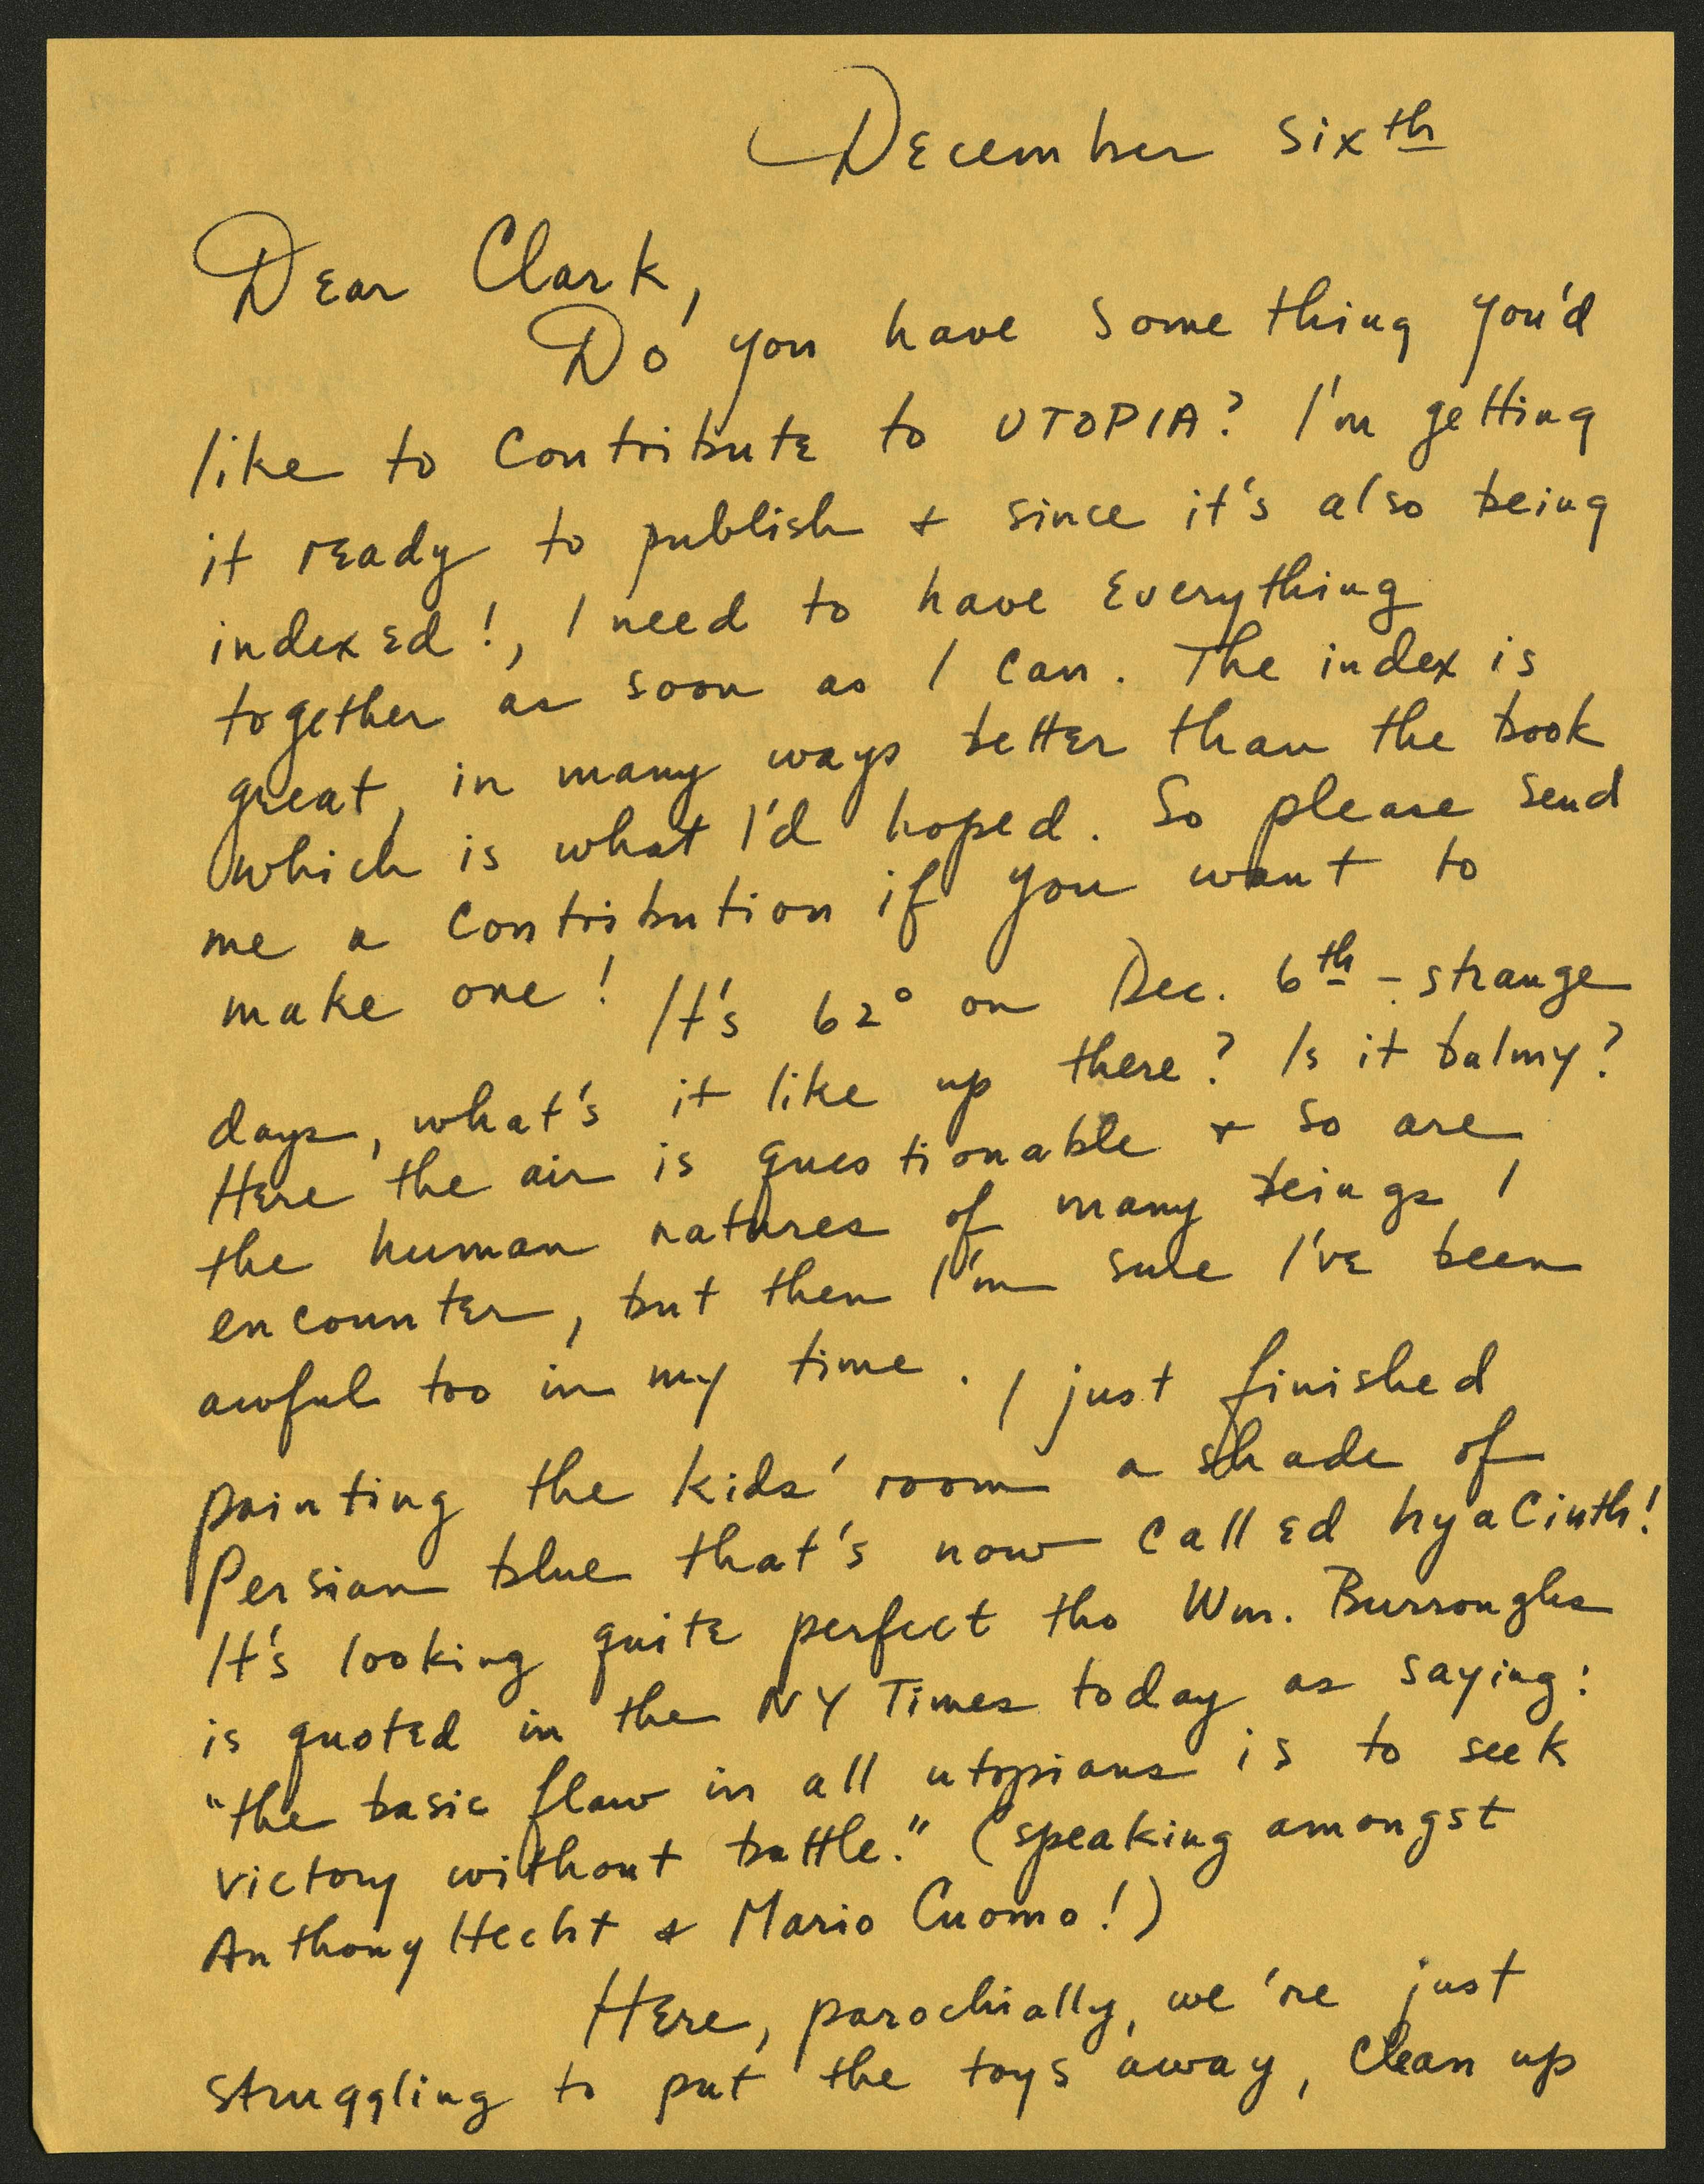 December sixth
Dear Clark,
Do you have something you'd
like to contribute to UTOPIA? I'm getting
it ready to publish + since it's also being
indexed!, I need to have everything
together as soon as I can. The index is
great, in many ways better than the book
which is what I'd hoped. So please send
me a contribution if you want to
make one! It's 62° on Dec. 6th - strange
days, what's it like up there? Is it balmy?
Here the air is questionable + so are
the human natures of many beings I
encounter, but then I'm sure I've been
awful too in my time. I just finished
painting the kids' room a shade of
Persian blue that's now called hyacinth!
It's looking quite perfect tho Wm. Burroughs
is quoted in the NY Times today as saying:
"the basic flaw in all utopians is to seek
victory without battle." (speaking amongst
Anthony Hecht + Mario Cuomo!)
Here, parochially, we're just
struggling to put the toys away, clean up